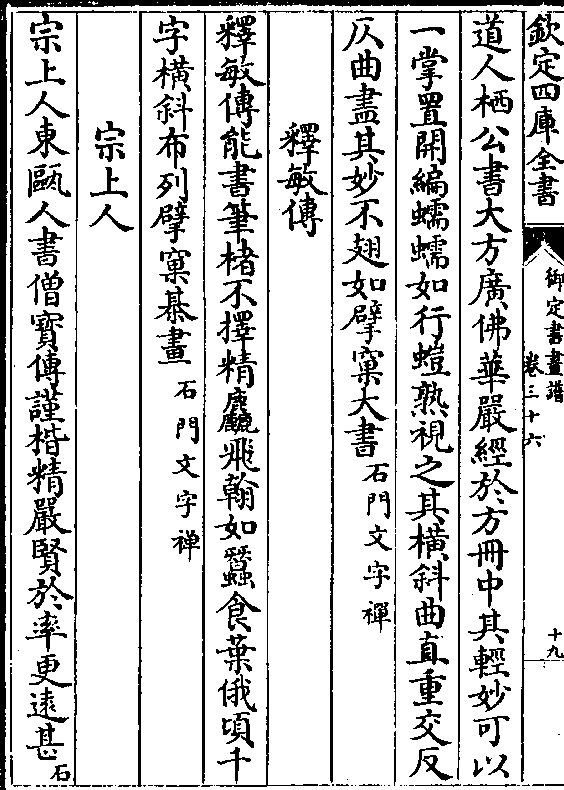 欽定四庫全書
御定書畫譜
卷三十六
十九
道人栖公書大方廣佛華嚴經於方冊中其輕妙可以
一掌置開編蠕蠕如行螘熟視之其橫斜曲直重交反
仄曲盡其妙不翅如擘窠大書石門文字禪
釋敏傳
釋敏傳能書筆楮不擇精麤飛翰如蠶食葉俄頃千
字橫斜布列擘窠棊畫石門文字禪
宗上人
宗上人東甌人書僧寶傳謹楷精嚴賢於率更遠甚石